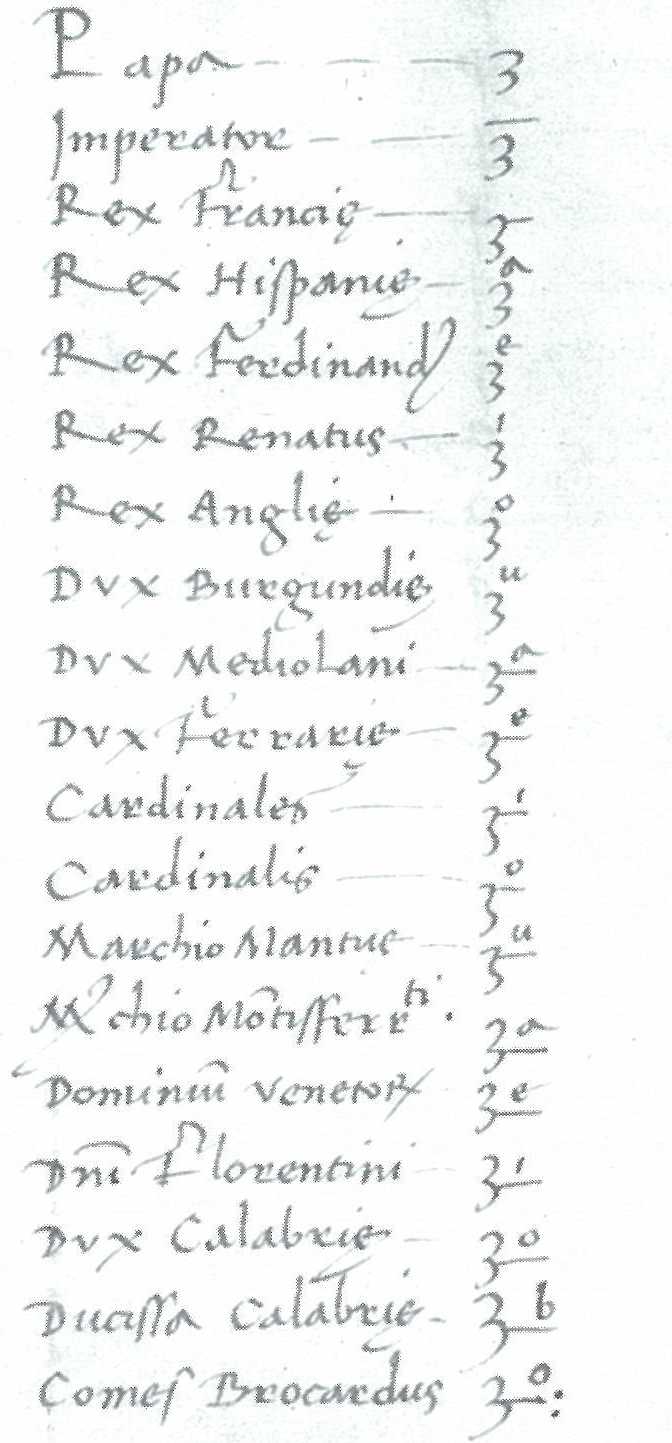 Papa — — — 3
Imperator — — 3̅
Rex Francię — 3
Rex Hiſpanię — 3 a
Rex Ferdinandꝰ 3 e
Rex Renatus — 3 i
Rex Anglię — 3 o
Dvx Burgundię 3 u
Dvx Mediolani — 3 a
Dvx Ferrarię — 3 e
Cardinales — 3 i
Cardinalis — 3 o
Marchio Mantuę — 3 u
Mchio Mōtiſferrti. 3 a
Dominiū Venetoꝝ 3 e
Dn̄i Florentini — 3 i
Dvx Calabrię — 3 o
Duciſſa Calabrię - 3 b
Comeſ Brocardus 3 o: